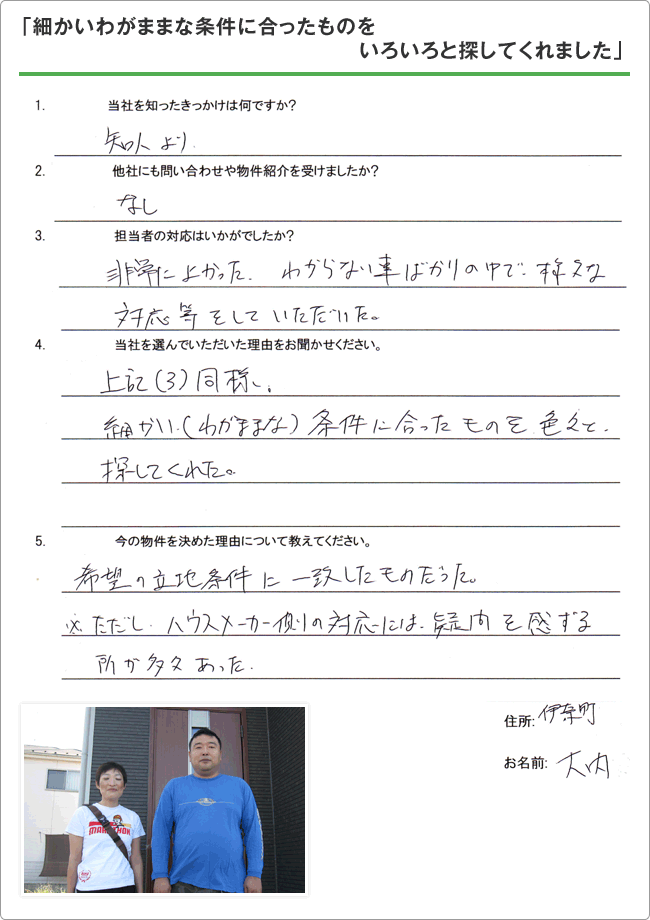 「細かいわがままな条件に合ったものを
いろいろと探してくれました」
1. 当社を知ったきっかけは何ですか?
知人より.
2. 他社にも問い合わせや物件紹介を受けましたか?
なし
3. 担当者の対応はいかがでしたか?
非常によかった. わからない事ばかりの中で.様々な
対応等をしていただいた。
4. 当社を選んでいただいた理由をお聞かせください。
上記(3)同様、
細かい.(わがままな)条件に合ったものを色々と.
探してくれた。
5. 今の物件を決めた理由について教えてください。
希望の立地条件に一致したものだった。
※ただし.ハウスメーカー側の対応には、疑問を感ずる
所が多々あった.
住所: 伊奈町
お名前: 大内
MARATHON